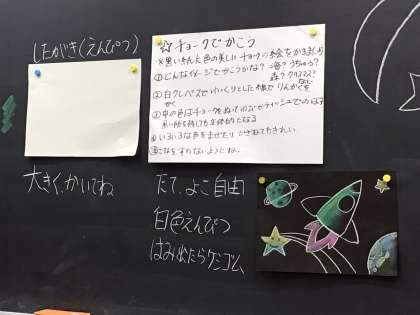 したがき(えんぴつ)
☆チョークでかこう
※黒い紙に色の美しいチョークで絵をかきましょう
①どんなイメージでかこうかな? 海? うちゅう?
森? クリスマス?
②白クレパスでゆっくりとした線で りんかくを
かく
③中の色はチョークをぬって
ティッシュで
④いろいろな色をまぜたり かさねてもきれい
⑤こなをすわないようにね。
大きく、かいてね
たて、よこ自由
白色えんぴつ
はみ出たらケシゴム